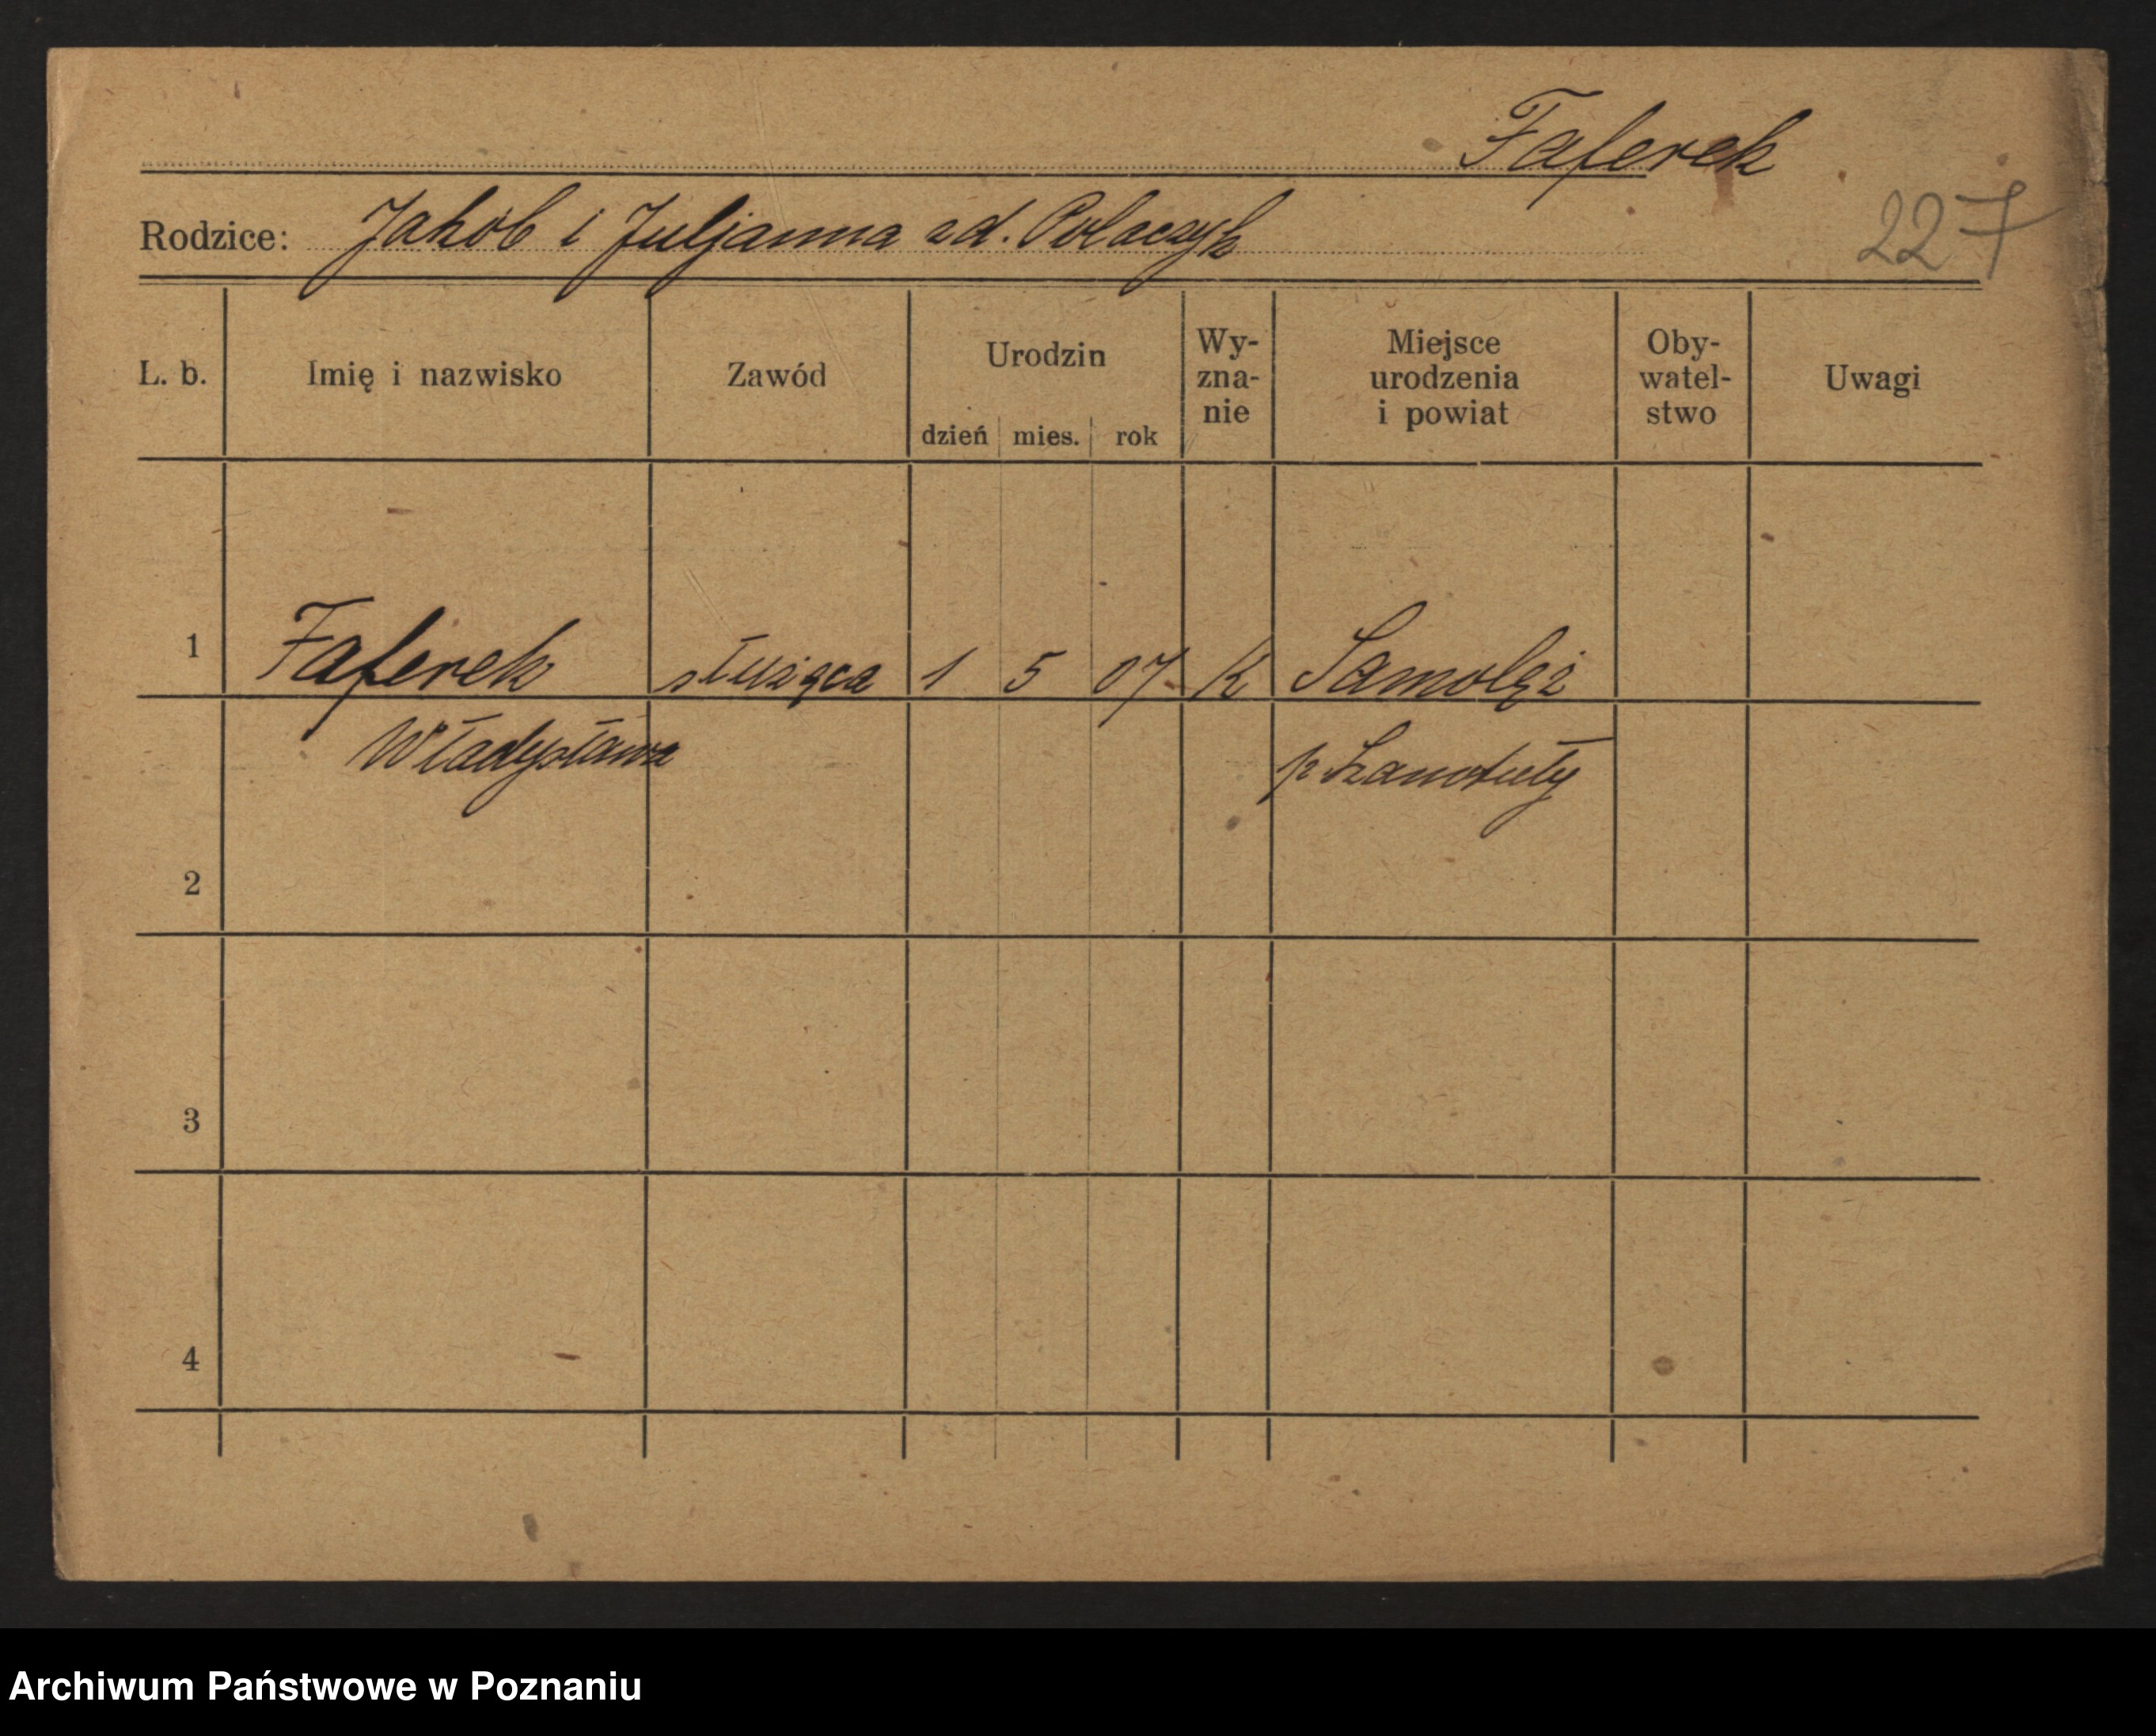 Faferek
Rodzice: Jakób i Juljanna zd. Polaczyk
227
L. b. Imię i nazwisko Zawód Urodzin dzień mies. rok Wy-zna-nie Miejsce urodzenia i powiat Oby-watel-stwo Uwagi
1 Faferek służąca 1 5 07 K Samołęż
Władysława p Szamotuły
2
3
4
Archiwum Państwowe w Poznaniu